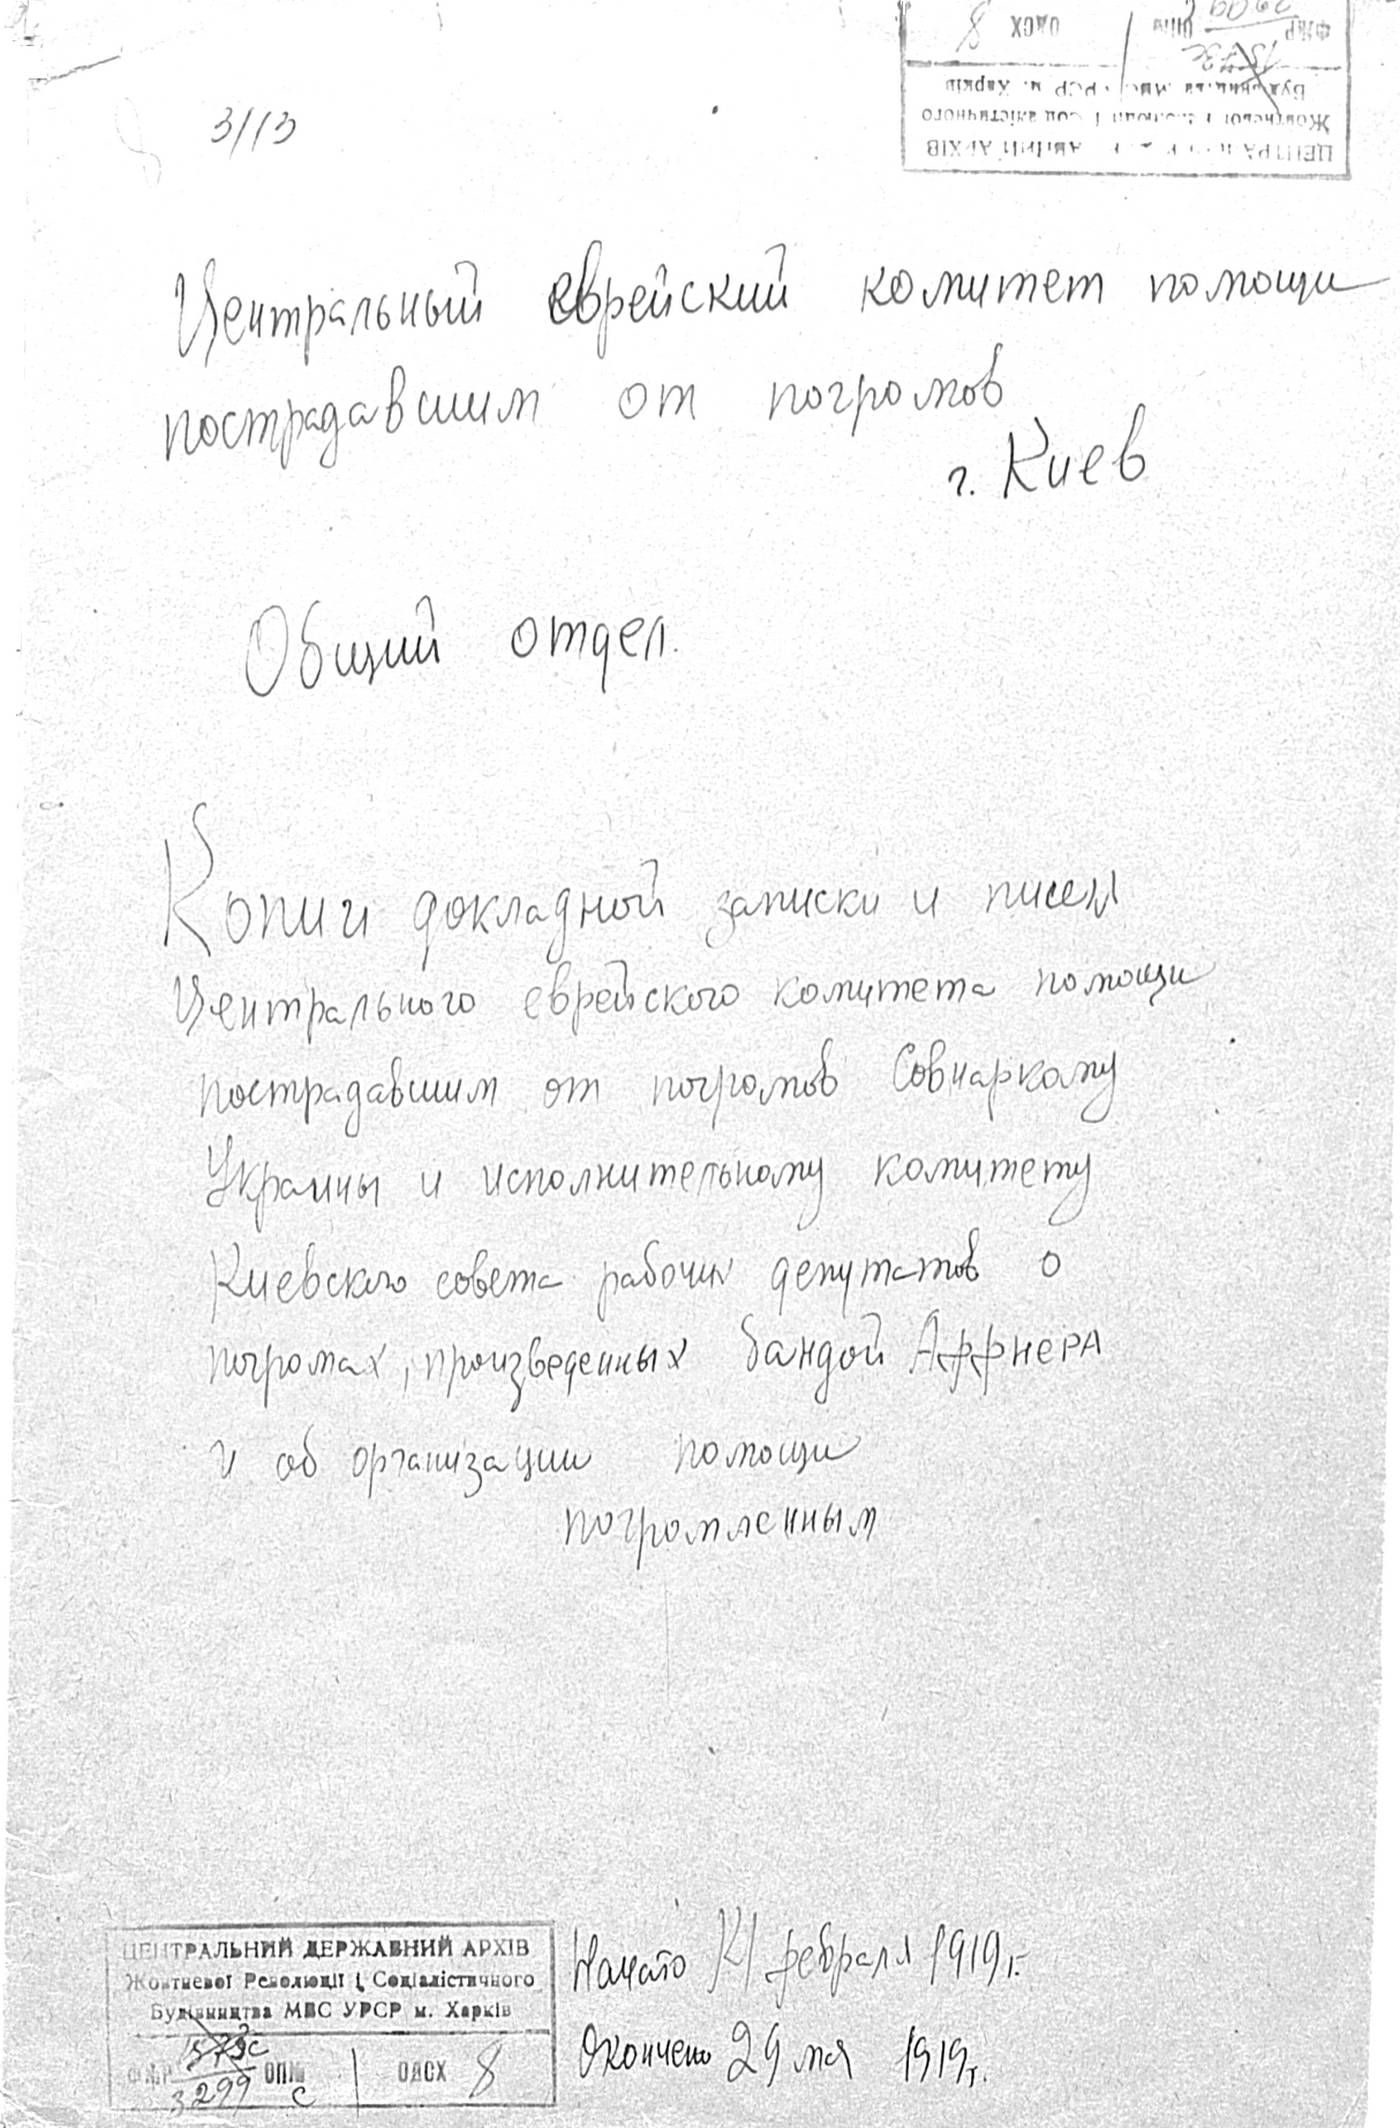 3/13
ЦЕНТРАЛЬНИЙ ДЕРЖАВНИЙ АРХІВ
Жовтневої Революції і Соціалістичного
Будівництва МВС УРСР м. Харків
ОДСХ 8
Центральный еврейский комитет помощи
пострадавшим от погромов
г. Киев
Общий отдел.
Копии докладной записки и писем
Центрального еврейского комитета помощи
пострадавшим от погромов Совнаркому
Украины и исполнительному комитету
Киевского совета рабочих депутатов о
погромах, произведенных бандой Аффнера
и об организации помощи
погромленным
ЦЕНТРАЛЬНИЙ ДЕРЖАВНИЙ АРХІВ
Жовтневої Революції і Соціалістичного
Будівництва МВС УРСР м. Харків
3299 ОП№ с ОДСХ 8
Начато февраля 1919 г.
Окончено 29 мая 1919 г.